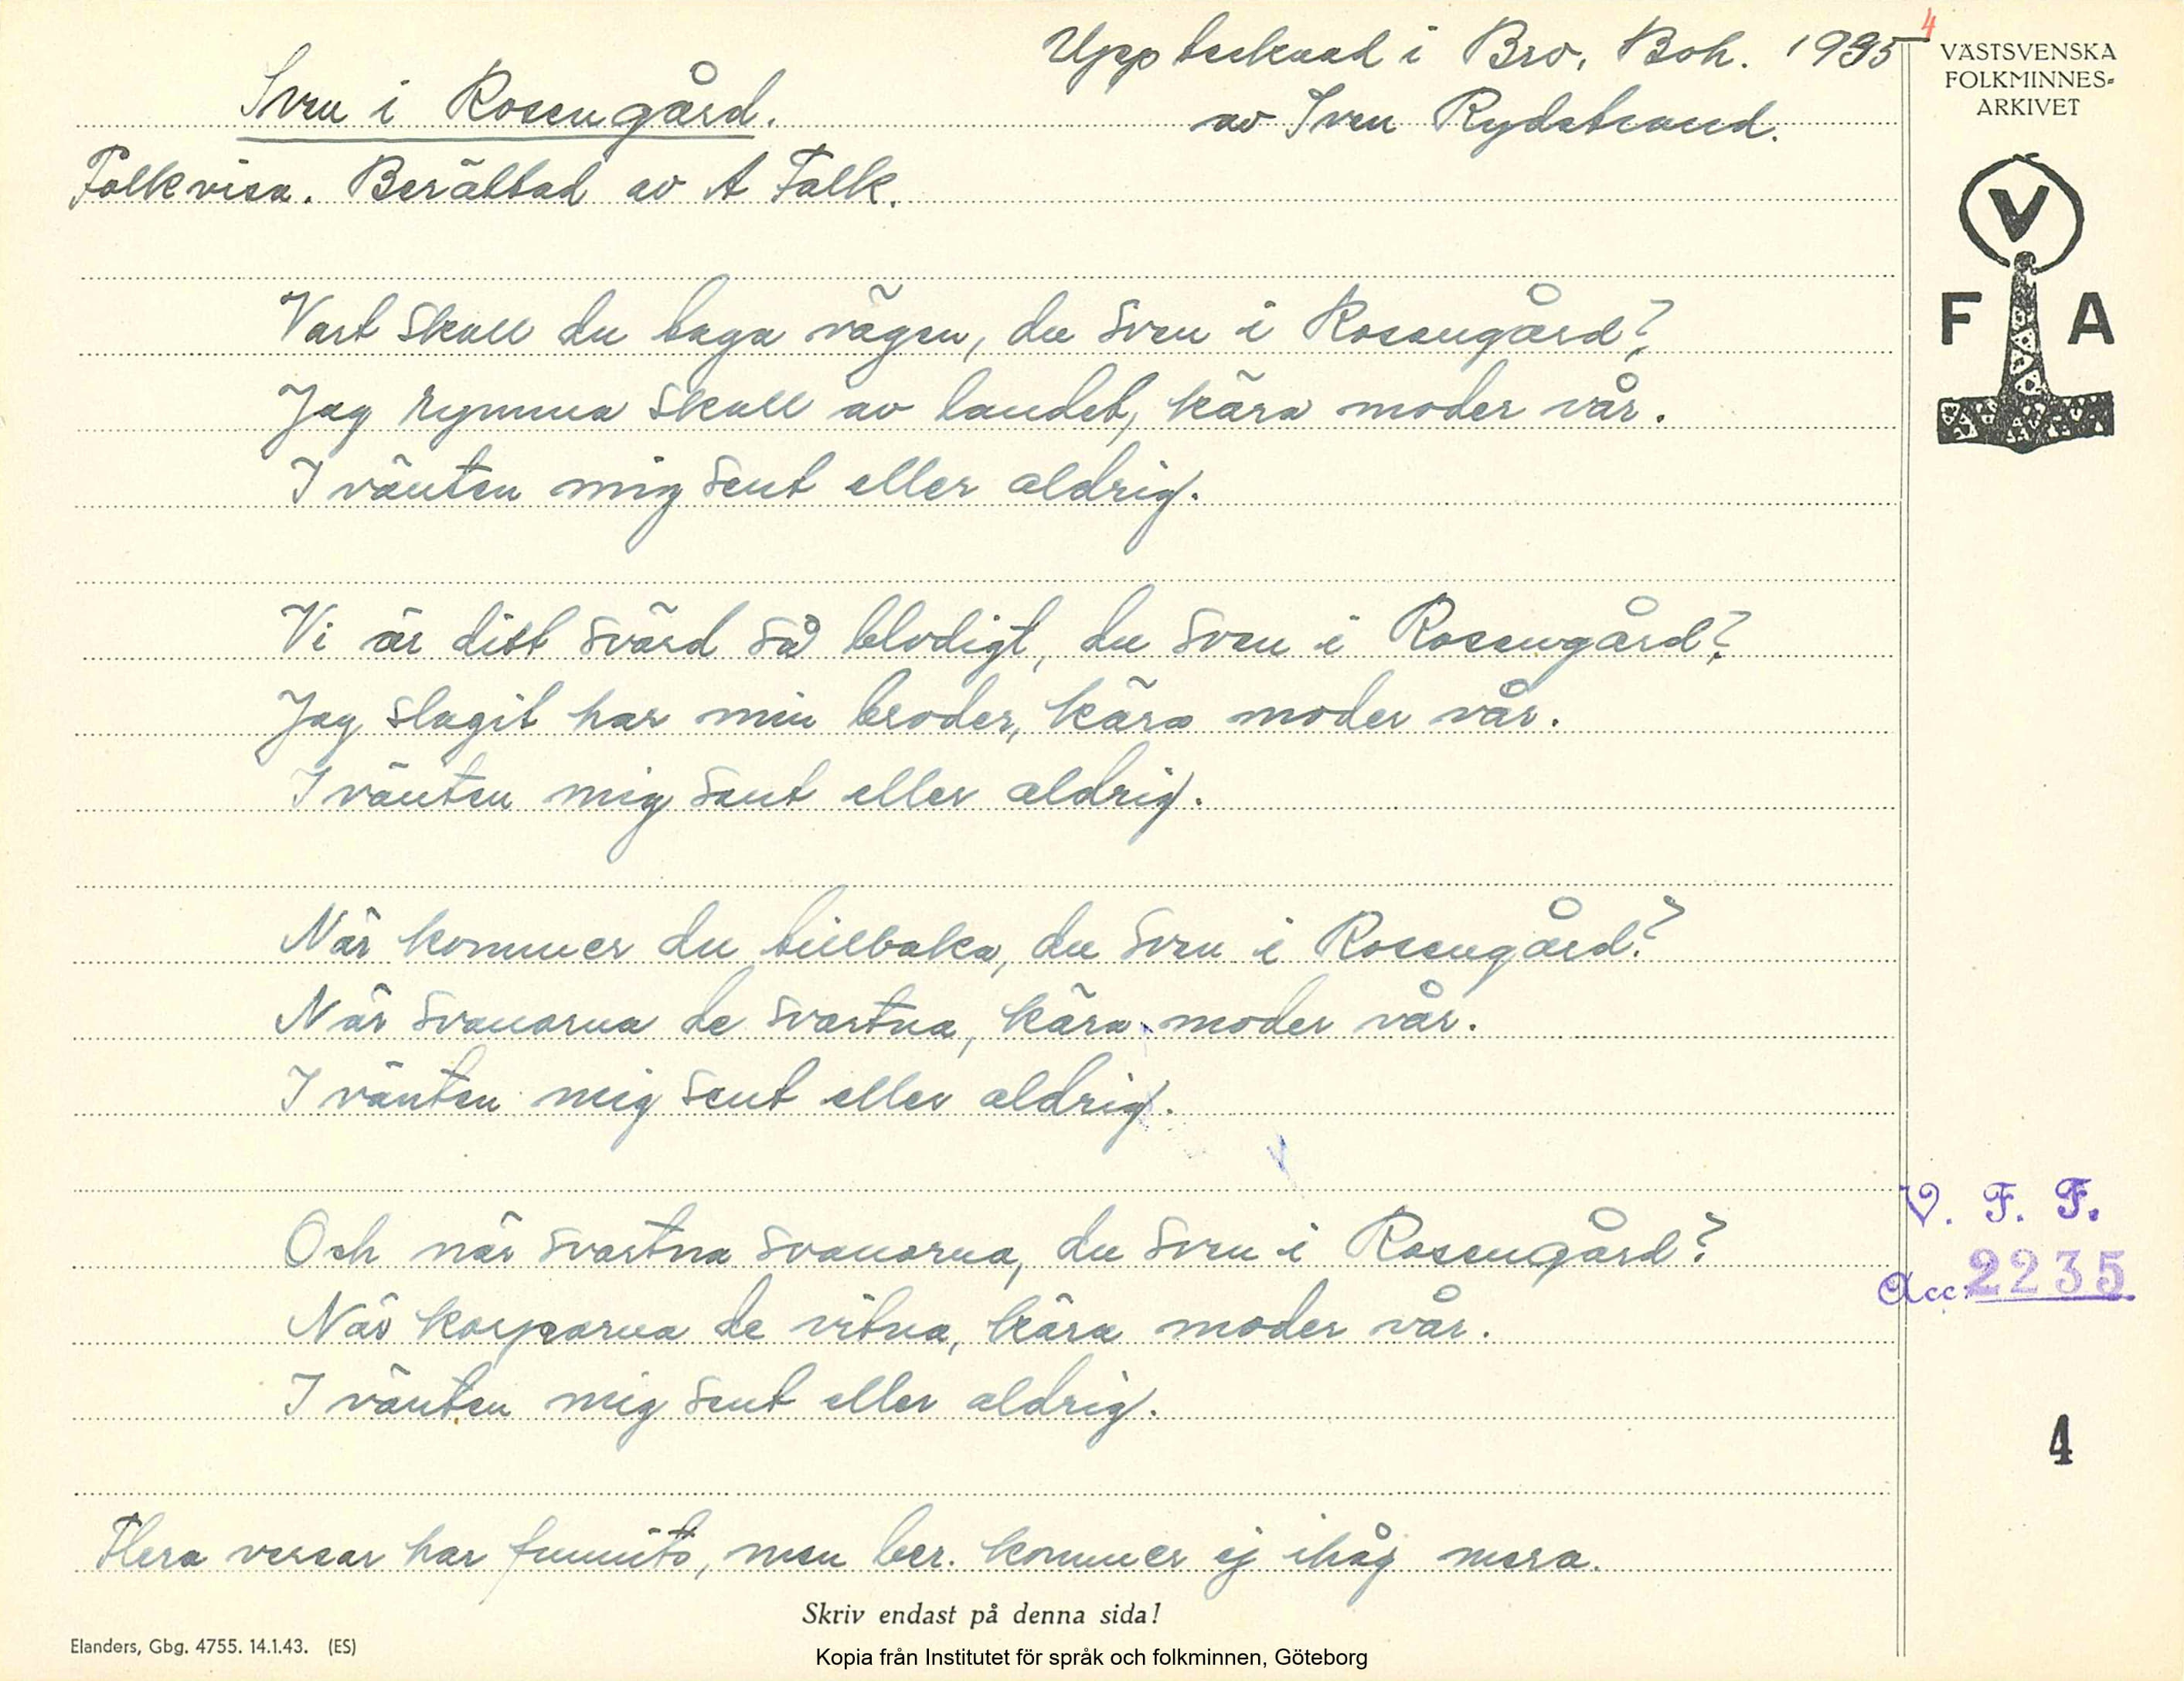 4
Upptecknad i Bro, Boh. 1935
av Sven Rydstrand.
Sven i Rosengård.
Folkvisa. Berättad av A Falk.
Vart skall du taga vägen, du Sven i Rosengård?
Jag rymma skall av landet, kära moder vår.
I vänten mig sent eller aldrig.
Vi är ditt svärd så blodigt, du Sven i Rosengård?
Jag slagit har min broder, kära moder vår.
I vänten mig sent eller aldrig.
När kommer du tillbaka, du Sven i Rosengård?
När svanarna de svartna, kära moder vår.
I vänten mig sent eller aldrig.
Och när svartna svanarna, du Sven i Rosengård?
När korparna de vitna, kära moder vår.
I vänten mig sent eller aldrig.
Flera versar har funnits, men ber. kommer ej ihåg mera.
Skriv endast på denna sida!
Elanders, Gbg. 4755. 14.1.43. (ES)
Kopia från Institutet för språk och folkminnen, Göteborg
VÄSTSVENSKA
FOLKMINNES-
ARKIVET
V
F A
V. F. F.
Acc. 2235
4